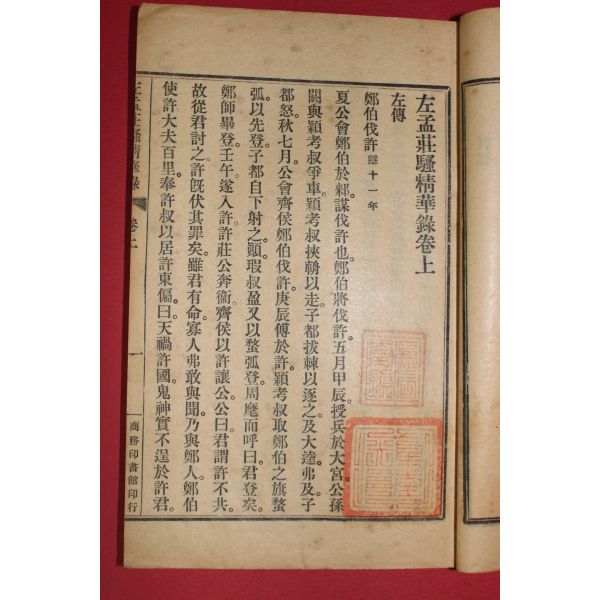 左孟莊騷精華錄卷上
左傳
鄭伯伐許 隱十一年
夏公會鄭伯於郲。謀伐許也。鄭伯將伐許。五月甲辰。授兵於大宮。公孫
閼與潁考叔爭車。潁考叔挾輈以走。子都拔棘以逐之。及大逵弗及。子
都怒。秋七月。公會齊侯鄭伯伐許。庚辰。傅於許。潁考叔取鄭伯之旗蝥
弧以先登。子都自下射之。顛。瑕叔盈又以蝥弧登。周麾而呼曰。君登矣。
鄭師畢登。壬午。遂入許。許莊公奔衞。齊侯以許讓公。公曰。君謂許不共。
故從君討之。許旣伏其罪矣。雖君有命。寡人弗敢與聞。乃與鄭人。鄭伯
使許大夫百里。奉許叔以居許東偏。曰。天禍許國。鬼神實不逞於許君。
左孟莊騷精華錄
卷上
一
商務印書館印行